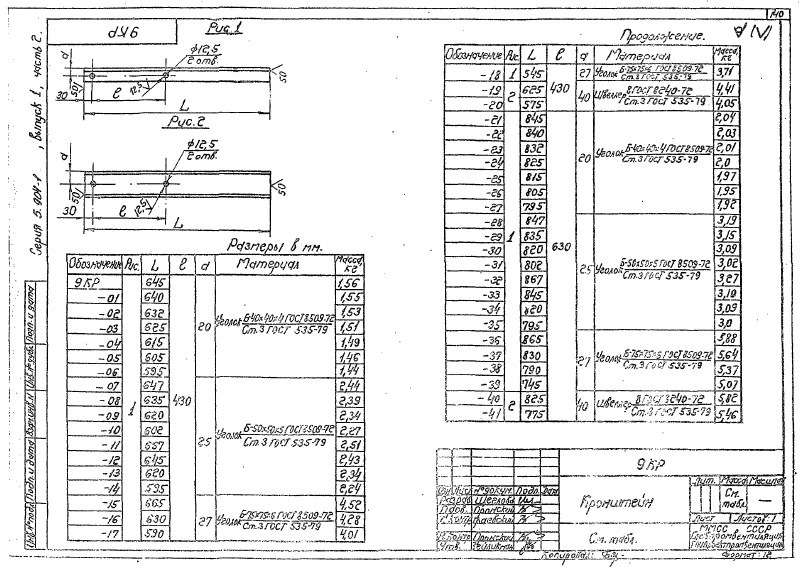 140
9КР
Рис.1
φ12,5
2 отв.
d
50
12,5
50
30
l
L
Рис.2
φ12,5
2 отв.
d
50
12,5
50
30
l
L
Серия 5.904-1, выпуск 1, часть 2.
(√)
Размеры в мм.
Обозначение Рис. L l d Материал Масса, кг
9КР 1 645 430 20 Уголок Б-40×40×4 ГОСТ 8509-72 / Ст.3 ГОСТ 535-79 1,56
-01 640 1,55
-02 632 1,53
-03 625 1,51
-04 615 1,49
-05 605 1,46
-06 595 1,44
-07 647 25 Уголок Б-50×50×5 ГОСТ 8509-72 / Ст.3 ГОСТ 535-79 2,44
-08 635 2,39
-09 620 2,34
-10 602 2,27
-11 667 2,51
-12 645 2,43
-13 620 2,34
-14 595 2,24
-15 665 27 Уголок Б-75×75×6 ГОСТ 8509-72 / Ст.3 ГОСТ 535-79 4,52
-16 630 4,28
-17 590 4,01
Продолжение.
Обозначение Рис. L l d Материал Масса, кг
-18 1 545 430 27 Уголок Б-75×75×6 ГОСТ 8509-72 / Ст.3 ГОСТ 535-79 3,71
-19 2 625 40 Швеллер 8 ГОСТ 8240-72 / Ст.3 ГОСТ 535-79 4,41
-20 575 4,05
-21 1 845 630 20 Уголок Б-40×40×4 ГОСТ 8509-72 / Ст.3 ГОСТ 535-79 2,04
-22 840 2,03
-23 832 2,01
-24 825 2,0
-25 815 1,97
-26 805 1,95
-27 795 1,92
-28 847 25 Уголок Б-50×50×5 ГОСТ 8509-72 / Ст.3 ГОСТ 535-79 3,19
-29 835 3,15
-30 820 3,09
-31 802 3,02
-32 867 3,27
-33 845 3,19
-34 820 3,09
-35 795 3,0
-36 865 27 Уголок Б-75×75×6 ГОСТ 8509-72 / Ст.3 ГОСТ 535-79 5,88
-37 830 5,64
-38 790 5,37
-39 745 5,07
-40 2 825 40 Швеллер 8 ГОСТ 8240-72 / Ст.3 ГОСТ 535-79 5,82
-41 775 5,46
9КР
Кронштейн
См. табл.
Лит. Масса Масштаб
См. табл. —
Лист Листов 1
ММСС СССР
№ докум. Подп. Дата
Разраб.
Пров.
Н.контр.
Утв.
Копировал:
Формат: 12
Подп. и дата
Взам.инв.№
Подп. и дата